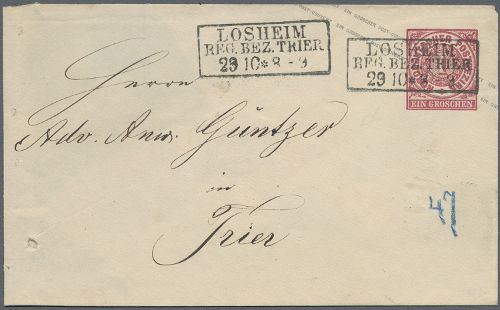 LOSHEIM
REG. BEZ. TRIER
29 10 * 8 - 9
LOSHEIM
REG. BEZ. TRIER
29 10 * 8 - 9
EIN GROSCHEN
Herrn
Adv. Anw. Güntzer
in
Trier